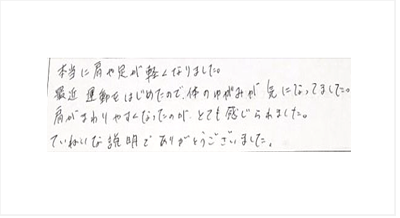 本当に肩や足が軽くなりました。
最近 運動をはじめたので、体のゆがみが気になってました。
肩がまわりやすくなったのが、とても感じられました。
ていねいな説明でありがとうございました。